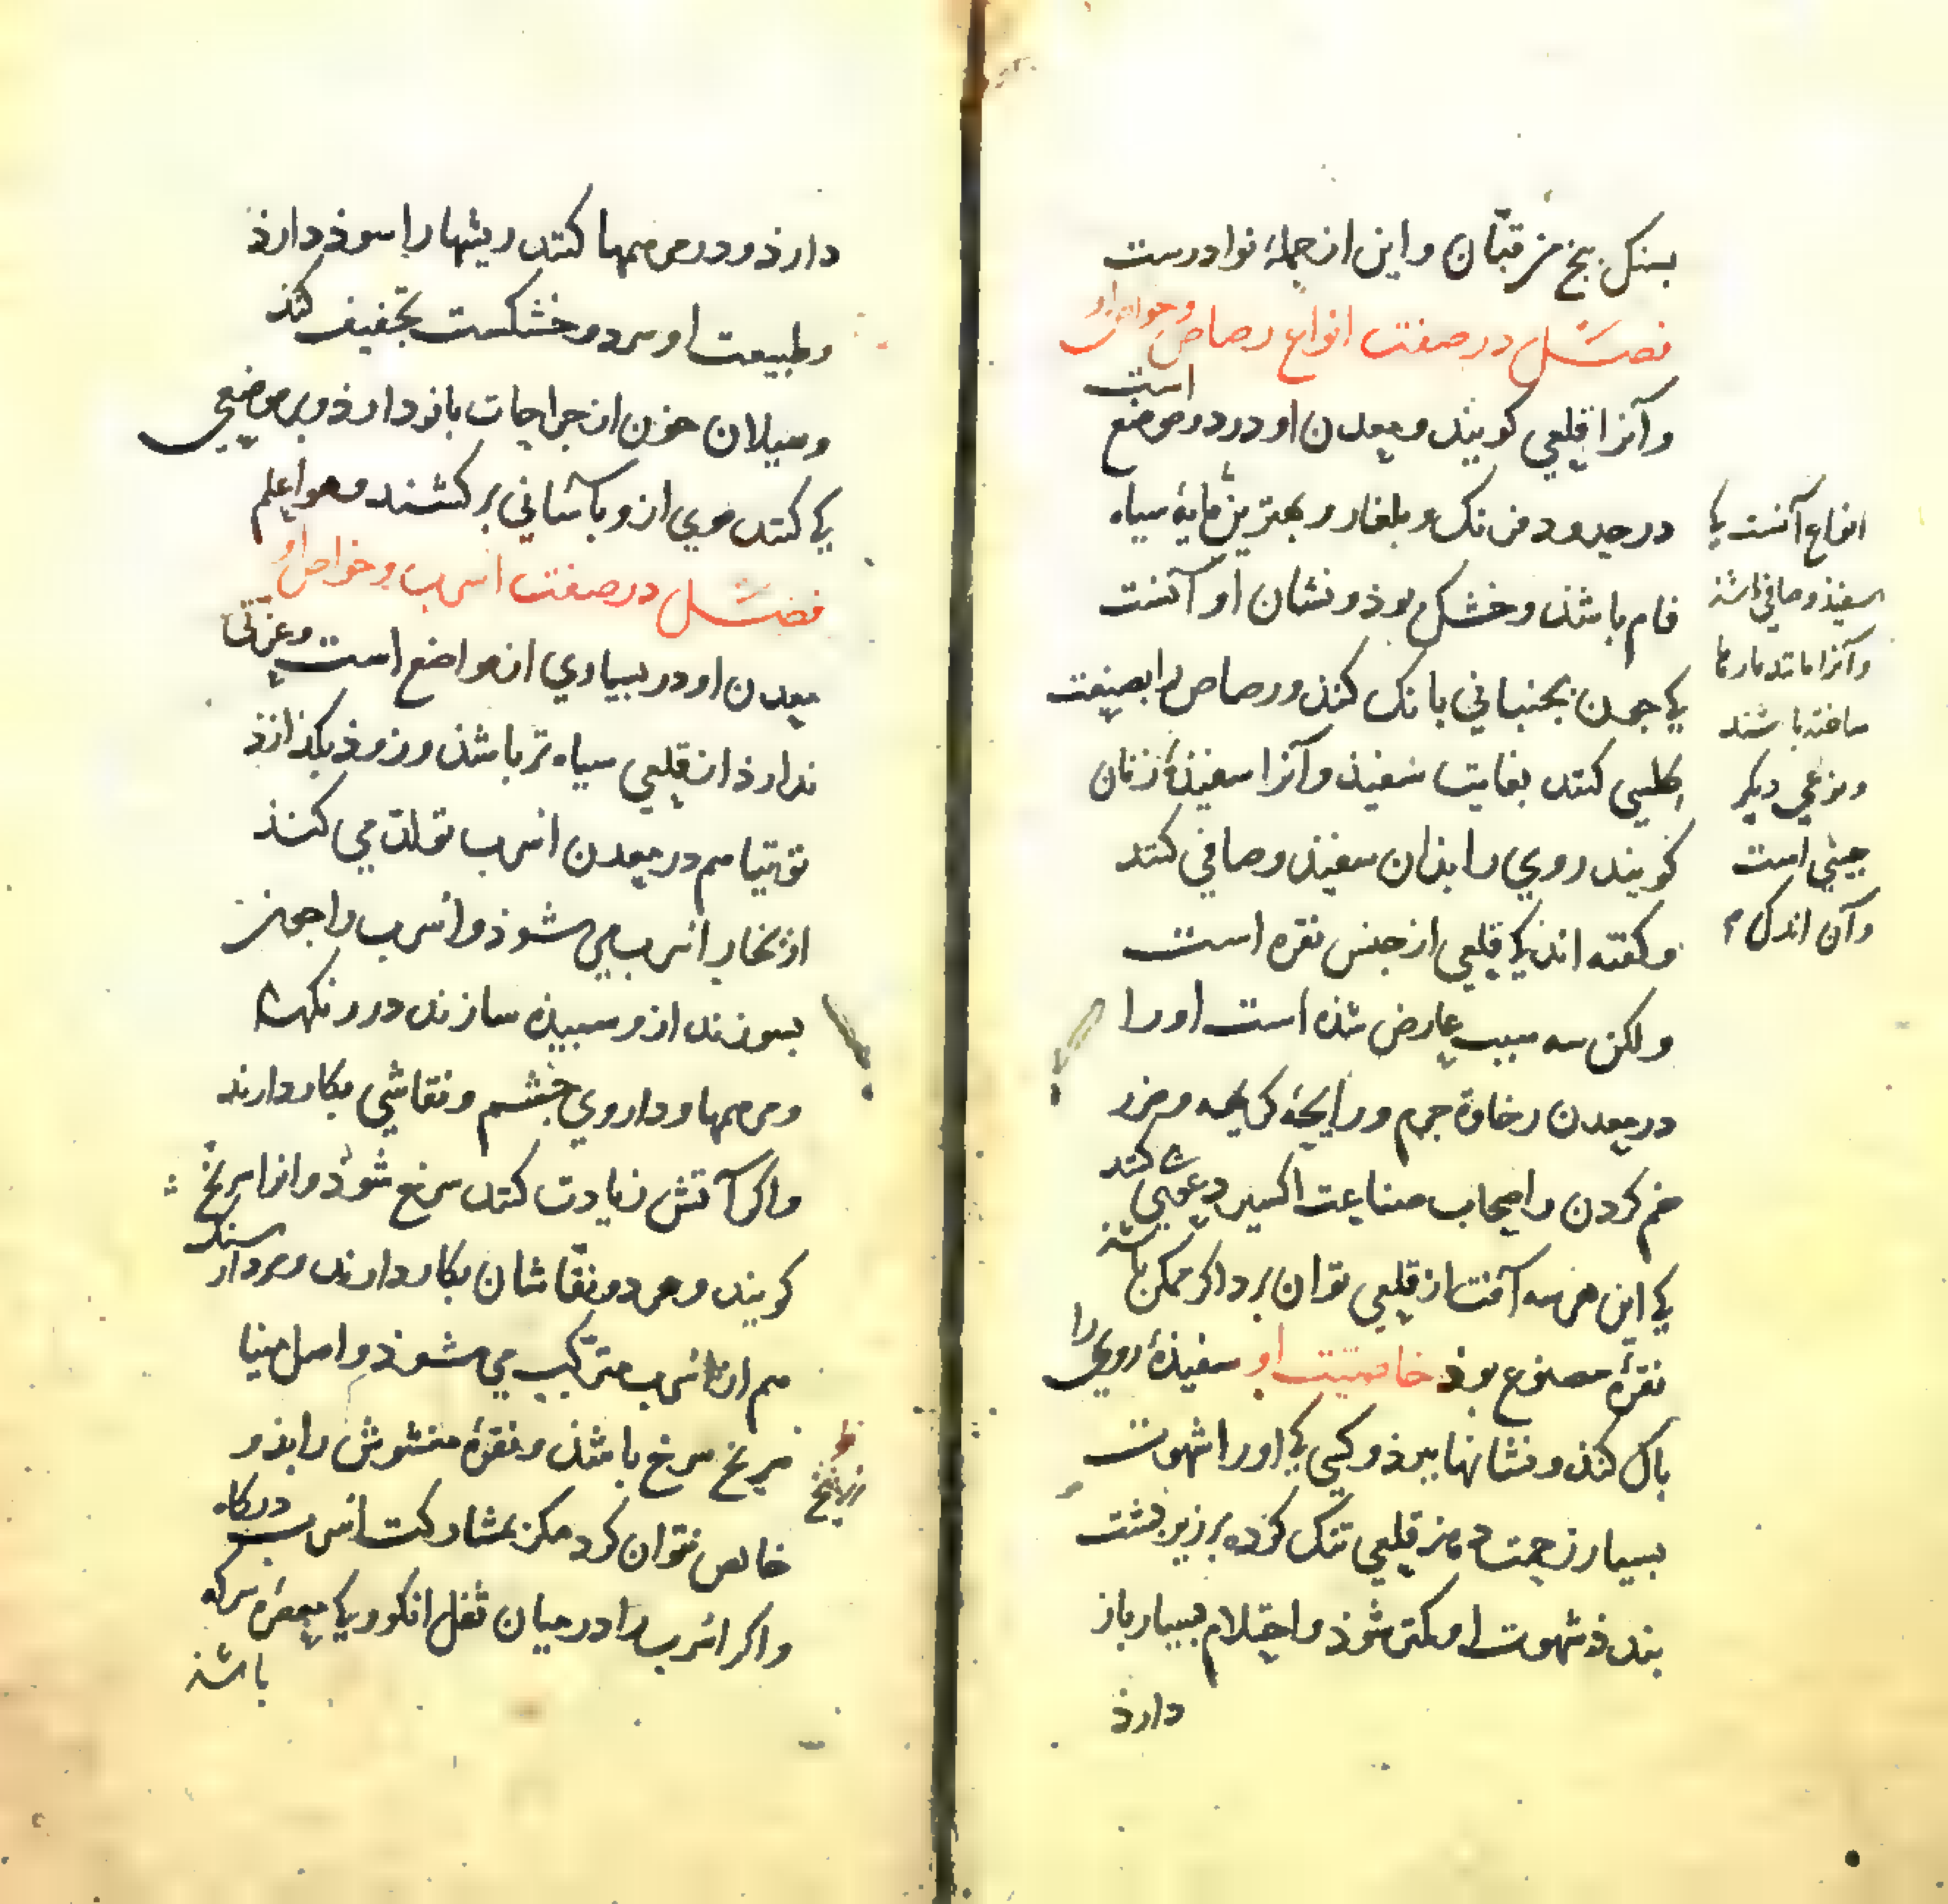 بسنک بنج من قبّان و این از جملهٔ نوادرست
فصل در صفت انواع رصاص و خواص او
و آنرا قلعی کویند و معدن او در دو موضع است
در حدود فرنک و بلغار و بهترین مایهٔ سیاه
فام باشذ و خشک بوذ و نشان او آنست
کی جون بجنبانی بانک کنذ و رصاص را بصنعت
کلسی کنند بغایت سفیذ و آنرا سفیذهٔ زنان
کویند روی را بذان سفیذ و صافی کنند
و کفته اند کی قلعی از جنس نقره است
ولکن سه سبب عارض شذه است او را
در معدن رخاوة جرم و رایحهٔ کریهه و صرر
خم کردن و اصحاب صناعت اکسیر دعوی کنند
کی این هر سه آفت از قلعی توان برد اکر ممکن باشذ
نقرهٔ مصنوع بوذ خاصیّت او سفیذهٔ روی را
باک کند و نشانها ببرذ و کسی کی او را شهوت
بسیار زحمت دهذ قلعی تنک کرده بر زیر بشت
بندذ شهوت او کمتر شوذ و احتلام بسیار باز
دارذ
انواع آنست کی
سفیذ و صافی باشذ
و آنرا مانند مارها
ساخته باشند
و نوعی دیکر
جینی است
و آن اندک
دارذ و در مرهمها کنند ریشها را سوذ دارذ
و طبیعت او سرد و خشکست تجفیف کنذ
و سیلان خون از جراحات باز دارذ و بر موضعی
کی کنند موی ازو بآسانی برکشند و هو اعلم
فصل در صفت اسرب و خواص او
معدن او در بسیاری از مواضع است و عزّتی
ندارذ از قلعی سیاه تر باشذ و زوذ بکذازذ
توتیا هم در معدن اسرب تولّد می کنذ
از بخار اسرب می شوذ و اسرب را جون
بسوزند ازو سبیده سازند در رنکها
و مرهمها و داروی جشم و نقاشی بکار دارند
و اکر آتش زیادت کنند سرخ شوذ و انرا سرنج
کویند و هر دو نقّاشان بکار دارند و مردار سنک
هم از اسرب مترکّب می شوذ و اصل مینا
سرنج سرخ باشذ و نقرهٔ مغشوش را بذو
خالص نتوان کرد مکر بمشارکت اسرب در کاه
و اکر اسرب را در میان ثفل انکور کی معصرهٔ سرکه
باشذ